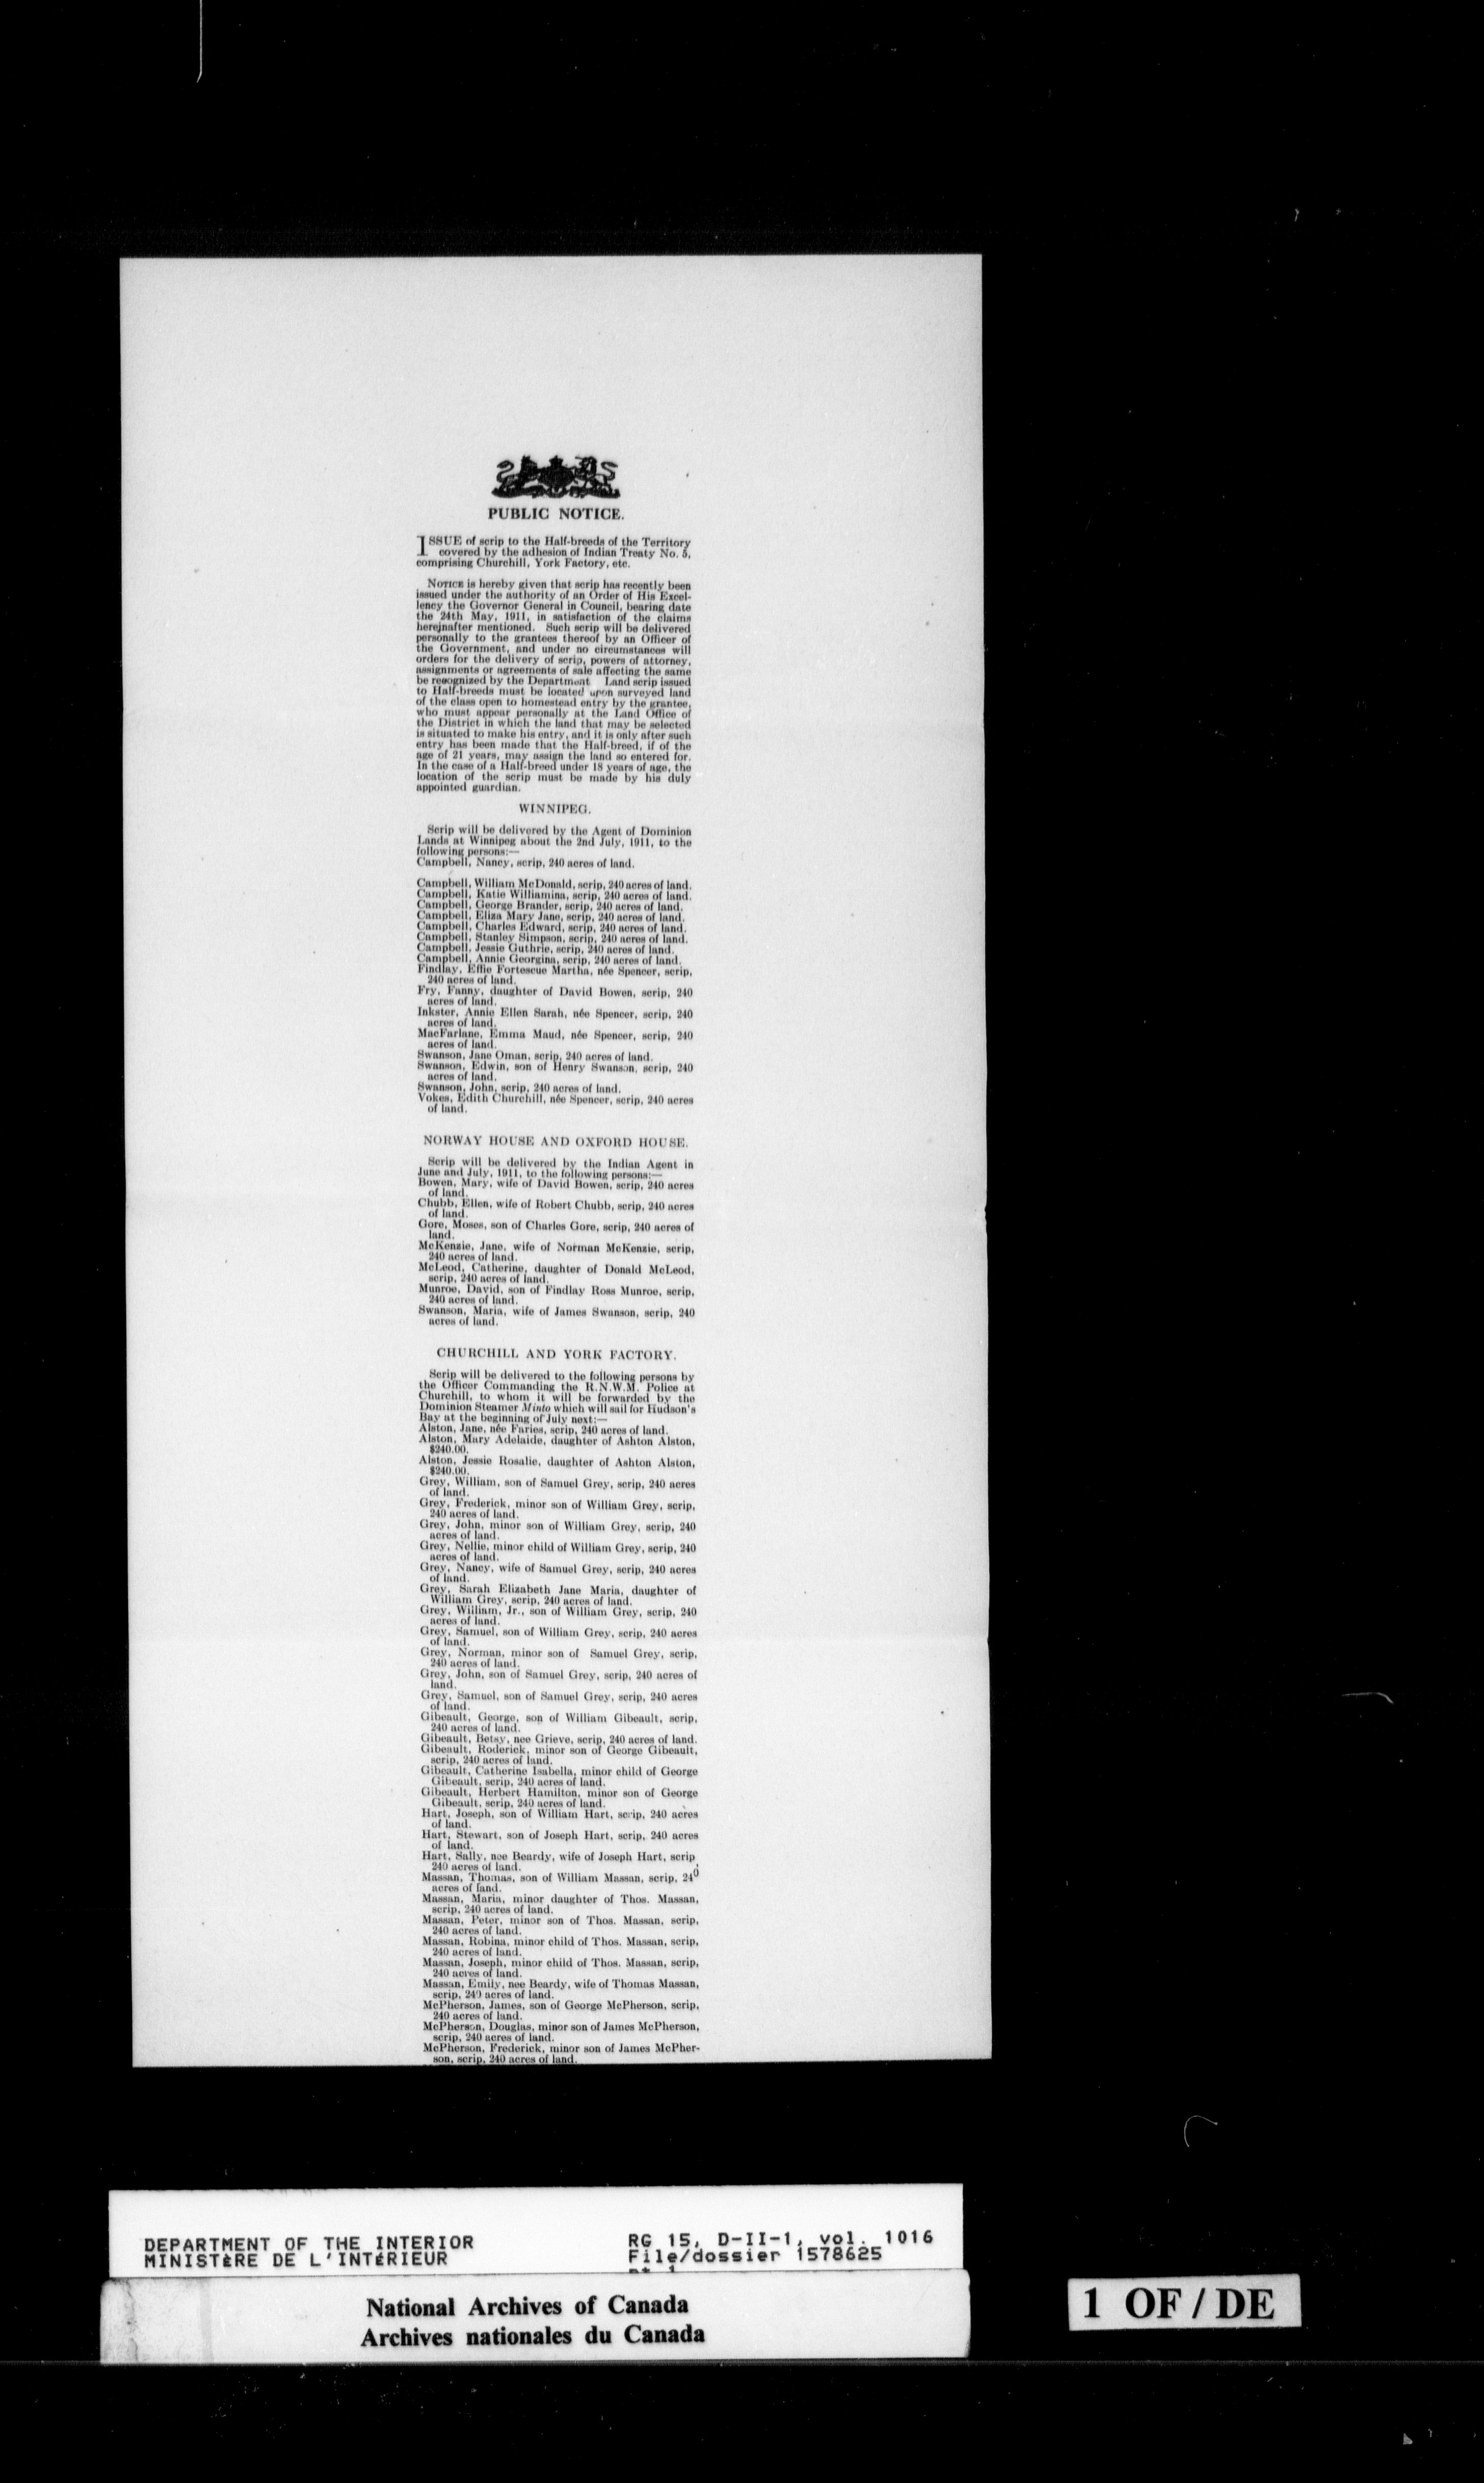 PUBLIC NOTICE.
ISSUE of scrip to the Half-breeds of the Territory
covered by the adhesion of Indian Treaty No. 5,
comprising Churchill, York Factory, etc.
NOTICE is hereby given that scrip has recently been
issued under the authority of an Order of His Excel-
lency the Governor General in Council, bearing date
the 24th May, 1911, in satisfaction of the claims
hereinafter mentioned. Such scrip will be delivered
personally to the grantees thereof by an Officer of
the Government, and under no circumstances will
orders for the delivery of scrip, powers of attorney,
assignments or agreements of sale affecting the same
be recognized by the Department Land scrip issued
to Half-breeds must be located upon surveyed land
of the class open to homestead entry by the grantee,
who must appear personally at the Land Office of
the District in which the land that may be selected
is situated to make his entry, and it is only after such
entry has been made that the Half-breed, if of the
age of 21 years, may assign the land so entered for.
In the case of a Half-breed under 18 years of age, the
location of the scrip must be made by his duly
appointed guardian.
WINNIPEG.
Scrip will be delivered by the Agent of Dominion
Lands at Winnipeg about the 2nd July, 1911, to the
following persons:—
Campbell, Nancy, scrip, 240 acres of land.
Campbell, William McDonald, scrip, 240 acres of land.
Campbell, Katie Williamina, scrip, 240 acres of land.
Campbell, George Brander, scrip, 240 acres of land.
Campbell, Eliza Mary Jane, scrip, 240 acres of land.
Campbell, Charles Edward, scrip, 240 acres of land.
Campbell, Stanley Simpson, scrip, 240 acres of land.
Campbell, Jessie Guthrie, scrip, 240 acres of land.
Campbell, Annie Georgina, scrip, 240 acres of land.
Findlay, Effie Fortescue Martha, née Spencer, scrip,
240 acres of land.
Fry, Fanny, daughter of David Bowen, scrip, 240
acres of land.
Inkster, Annie Ellen Sarah, née Spencer, scrip, 240
acres of land.
MacFarlane, Emma Maud, née Spencer, scrip, 240
acres of land.
Swanson, Jane Oman, scrip, 240 acres of land.
Swanson, Edwin, son of Henry Swanson, scrip, 240
acres of land.
Swanson, John, scrip, 240 acres of land.
Vokes, Edith Churchill, née Spencer, scrip, 240 acres
of land.
NORWAY HOUSE AND OXFORD HOUSE.
Scrip will be delivered by the Indian Agent in
June and July, 1911, to the following persons:—
Bowen, Mary, wife of David Bowen, scrip, 240 acres
of land.
Chubb, Ellen, wife of Robert Chubb, scrip, 240 acres
of land.
Gore, Moses, son of Charles Gore, scrip, 240 acres of
land.
McKenzie, Jane, wife of Norman McKenzie, scrip,
240 acres of land.
McLeod, Catherine, daughter of Donald McLeod,
scrip, 240 acres of land.
Munroe, David, son of Findlay Ross Munroe, scrip,
240 acres of land.
Swanson, Maria, wife of James Swanson, scrip, 240
acres of land.
CHURCHILL AND YORK FACTORY.
Scrip will be delivered to the following persons by
the Officer Commanding the R.N.W.M. Police at
Churchill, to whom it will be forwarded by the
Dominion Steamer Minto which will sail for Hudson's
Bay at the beginning of July next:—
Alston, Jane, née Faries, scrip, 240 acres of land.
Alston, Mary Adelaide, daughter of Ashton Alston,
$240.00.
Alston, Jessie Rosalie, daughter of Ashton Alston,
$240.00.
Grey, William, son of Samuel Grey, scrip, 240 acres
of land.
Grey, Frederick, minor son of William Grey, scrip,
240 acres of land.
Grey, John, minor son of William Grey, scrip, 240
acres of land.
Grey, Nellie, minor child of William Grey, scrip, 240
acres of land.
Grey, Nancy, wife of Samuel Grey, scrip, 240 acres
of land.
Grey, Sarah Elizabeth Jane Maria, daughter of
William Grey, scrip, 240 acres of land.
Grey, William, Jr., son of William Grey, scrip, 240
acres of land.
Grey, Samuel, son of William Grey, scrip, 240 acres
of land.
Grey, Norman, minor son of Samuel Grey, scrip,
240 acres of land.
Grey, John, son of Samuel Grey, scrip, 240 acres of
land.
Grey, Samuel, son of Samuel Grey, scrip, 240 acres
of land.
Gibeault, George, son of William Gibeault, scrip,
240 acres of land.
Gibeault, Betsy, nee Grieve, scrip, 240 acres of land.
Gibeault, Roderick, minor son of George Gibeault,
scrip, 240 acres of land.
Gibeault, Catherine Isabella, minor child of George
Gibeault, scrip, 240 acres of land.
Gibeault, Herbert Hamilton, minor son of George
Gibeault, scrip, 240 acres of land.
Hart, Joseph, son of William Hart, scrip, 240 acres
of land.
Hart, Stewart, son of Joseph Hart, scrip, 240 acres
of land.
Hart, Sally, nee Beardy, wife of Joseph Hart, scrip,
240 acres of land.
Massan, Thomas, son of William Massan, scrip, 240
acres of land.
Massan, Maria, minor daughter of Thos. Massan,
scrip, 240 acres of land.
Massan, Peter, minor son of Thos. Massan, scrip,
240 acres of land.
Massan, Robina, minor child of Thos. Massan, scrip,
240 acres of land.
Massan, Joseph, minor child of Thos. Massan, scrip,
240 acres of land.
Massan, Emily, nee Beardy, wife of Thomas Massan,
scrip, 240 acres of land.
McPherson, James, son of George McPherson, scrip,
240 acres of land.
McPherson, Douglas, minor son of James McPherson,
scrip, 240 acres of land.
McPherson, Frederick, minor son of James McPher-
son, scrip, 240 acres of land.
DEPARTMENT OF THE INTERIOR
MINISTÈRE DE L'INTÉRIEUR
RG 15, D-II-1, vol. 1016
File/dossier 1578625
National Archives of Canada
Archives nationales du Canada
1 OF / DE